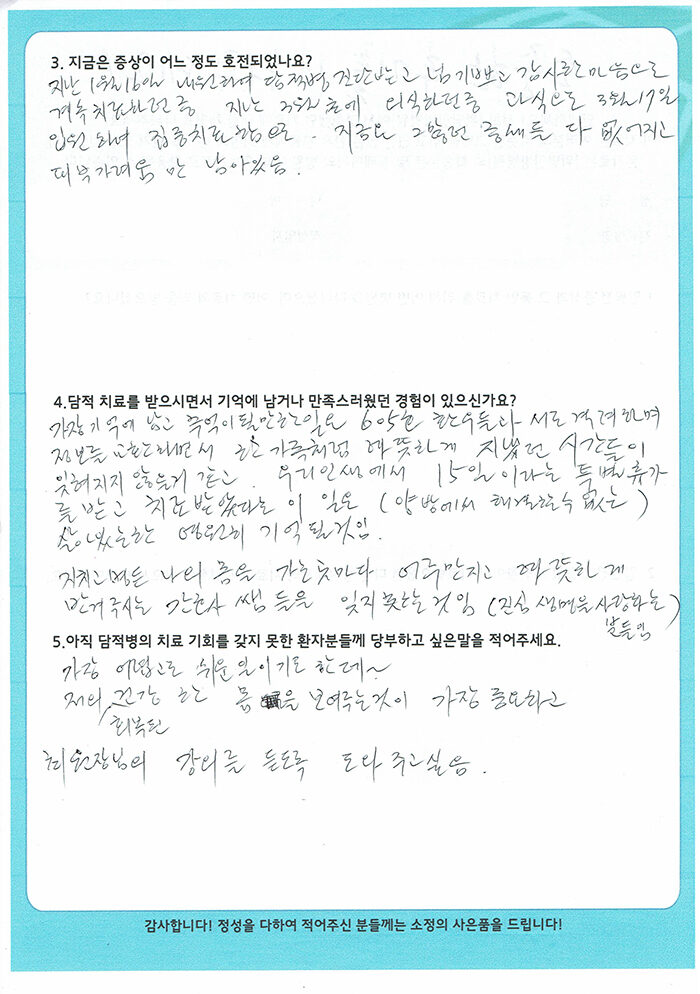 3. 지금은 증상이 어느 정도 호전되었나요?
지난 1월 16일 내원하여 담적병 진단받고 넘 기쁘고 감사한 마음으로
계속 치료하던 중 지난 3월 초에 외식하던중 과식으로 3월 17일
입원하여 집중치료함으로. 지금은 그 많던 증세들 다 없어지고
피부가려움만 남아있음.
4.담적 치료를 받으시면서 기억에 남거나 만족스러웠던 경험이 있으신가요?
가장 기억에 남고 추억이 될만한 일은 605호 환우들과 서로 격려하며
정보를 교환하면서 한 가족처럼 따뜻하게 지냈던 시간들이
잊혀지지 않을거 같고. 우리 인생에서 15일이라는 특별휴가
를 받고 치료받았다는 이 일은 (양방에서 해결할수 없는)
살아있는한 영원히 기억될것임.
지치고 병든 나의 몸을 가는 곳마다 어루만지고 따뜻하게
반겨주시는 간호사 쌤들을 잊지못하는 것임 (진심 생명을 사랑하는)
분들임
5.아직 담적병의 치료 기회를 갖지 못한 환자분들께 당부하고 싶은말을 적어주세요.
가장 어렵고도 쉬운 일이기도 한데~
저의 건강한 몸을 보여주는것이 가장 중요하고
회복된
최원장님의 강의를 듣도록 도와 주고 싶음.
감사합니다! 정성을 다하여 적어주신 분들께는 소정의 사은품을 드립니다!